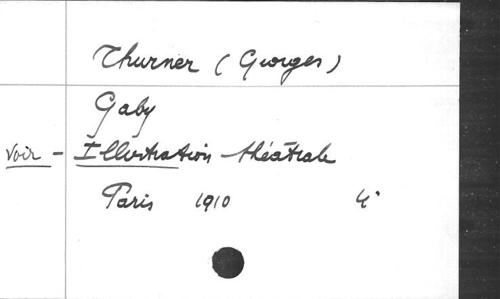 Thurner (Georges)
Gaby
Voir - Illustration théâtrale
Paris 1910 4°